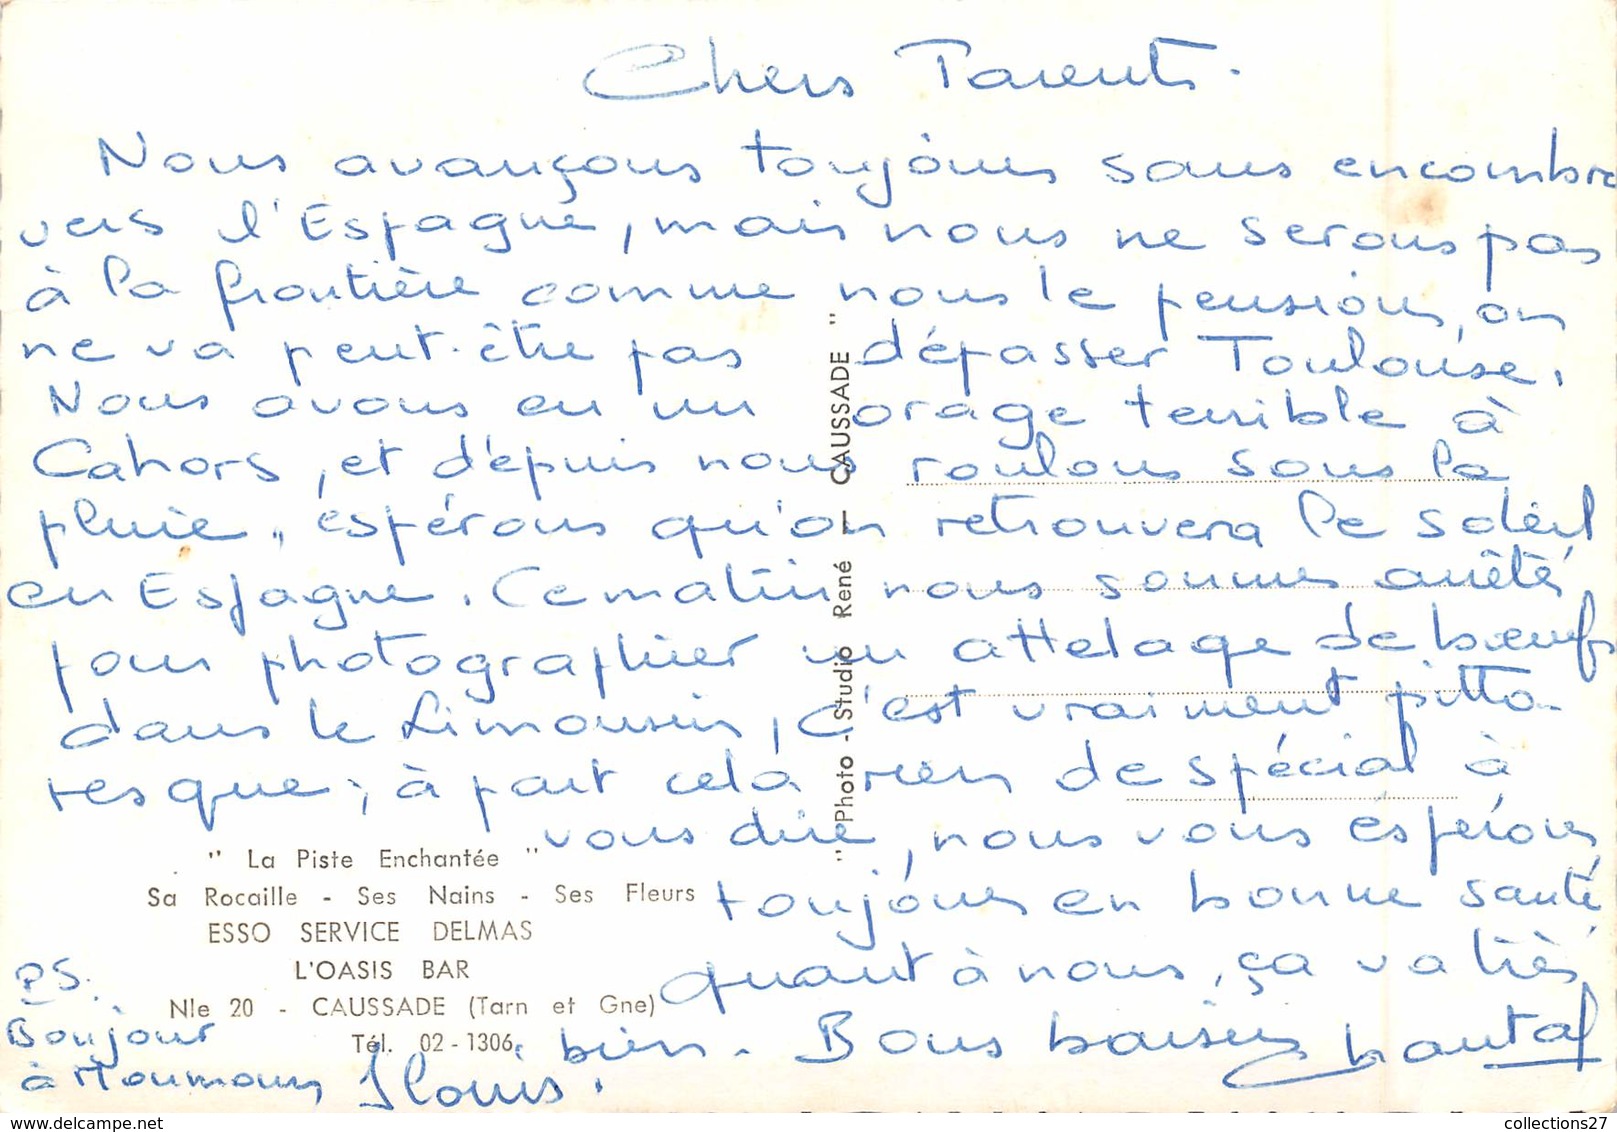 Chers Parents.
Nous avançons toujours sans encombre
vers l'Espagne, mais nous ne serons pas
à la frontière comme nous le pensions, on
ne va peut-être pas dépasser Toulouse.
Nous avons eu un orage terrible à
Cahors, et depuis nous roulons sous la
pluie, espérons qu'on retrouvera le soleil
en Espagne. Ce matin nous sommes arrêtés
pour photographier un attelage de boeufs
dans le Limousin, c'est vraiment pitto-
resque, à part cela rien de spécial à
vous dire, nous vous espérons
toujours en bonne santé,
quant à nous, ça va très
bien. Bons baisers Chantal
" La Piste Enchantée "
Sa Rocaille - Ses Nains - Ses Fleurs
ESSO SERVICE DELMAS
L'OASIS BAR
Nle 20 - CAUSSADE (Tarn et Gne)
Tél. 02-1306.
PS.
Bonjour
à
"Photo - Studio René - CAUSSADE"
collections27